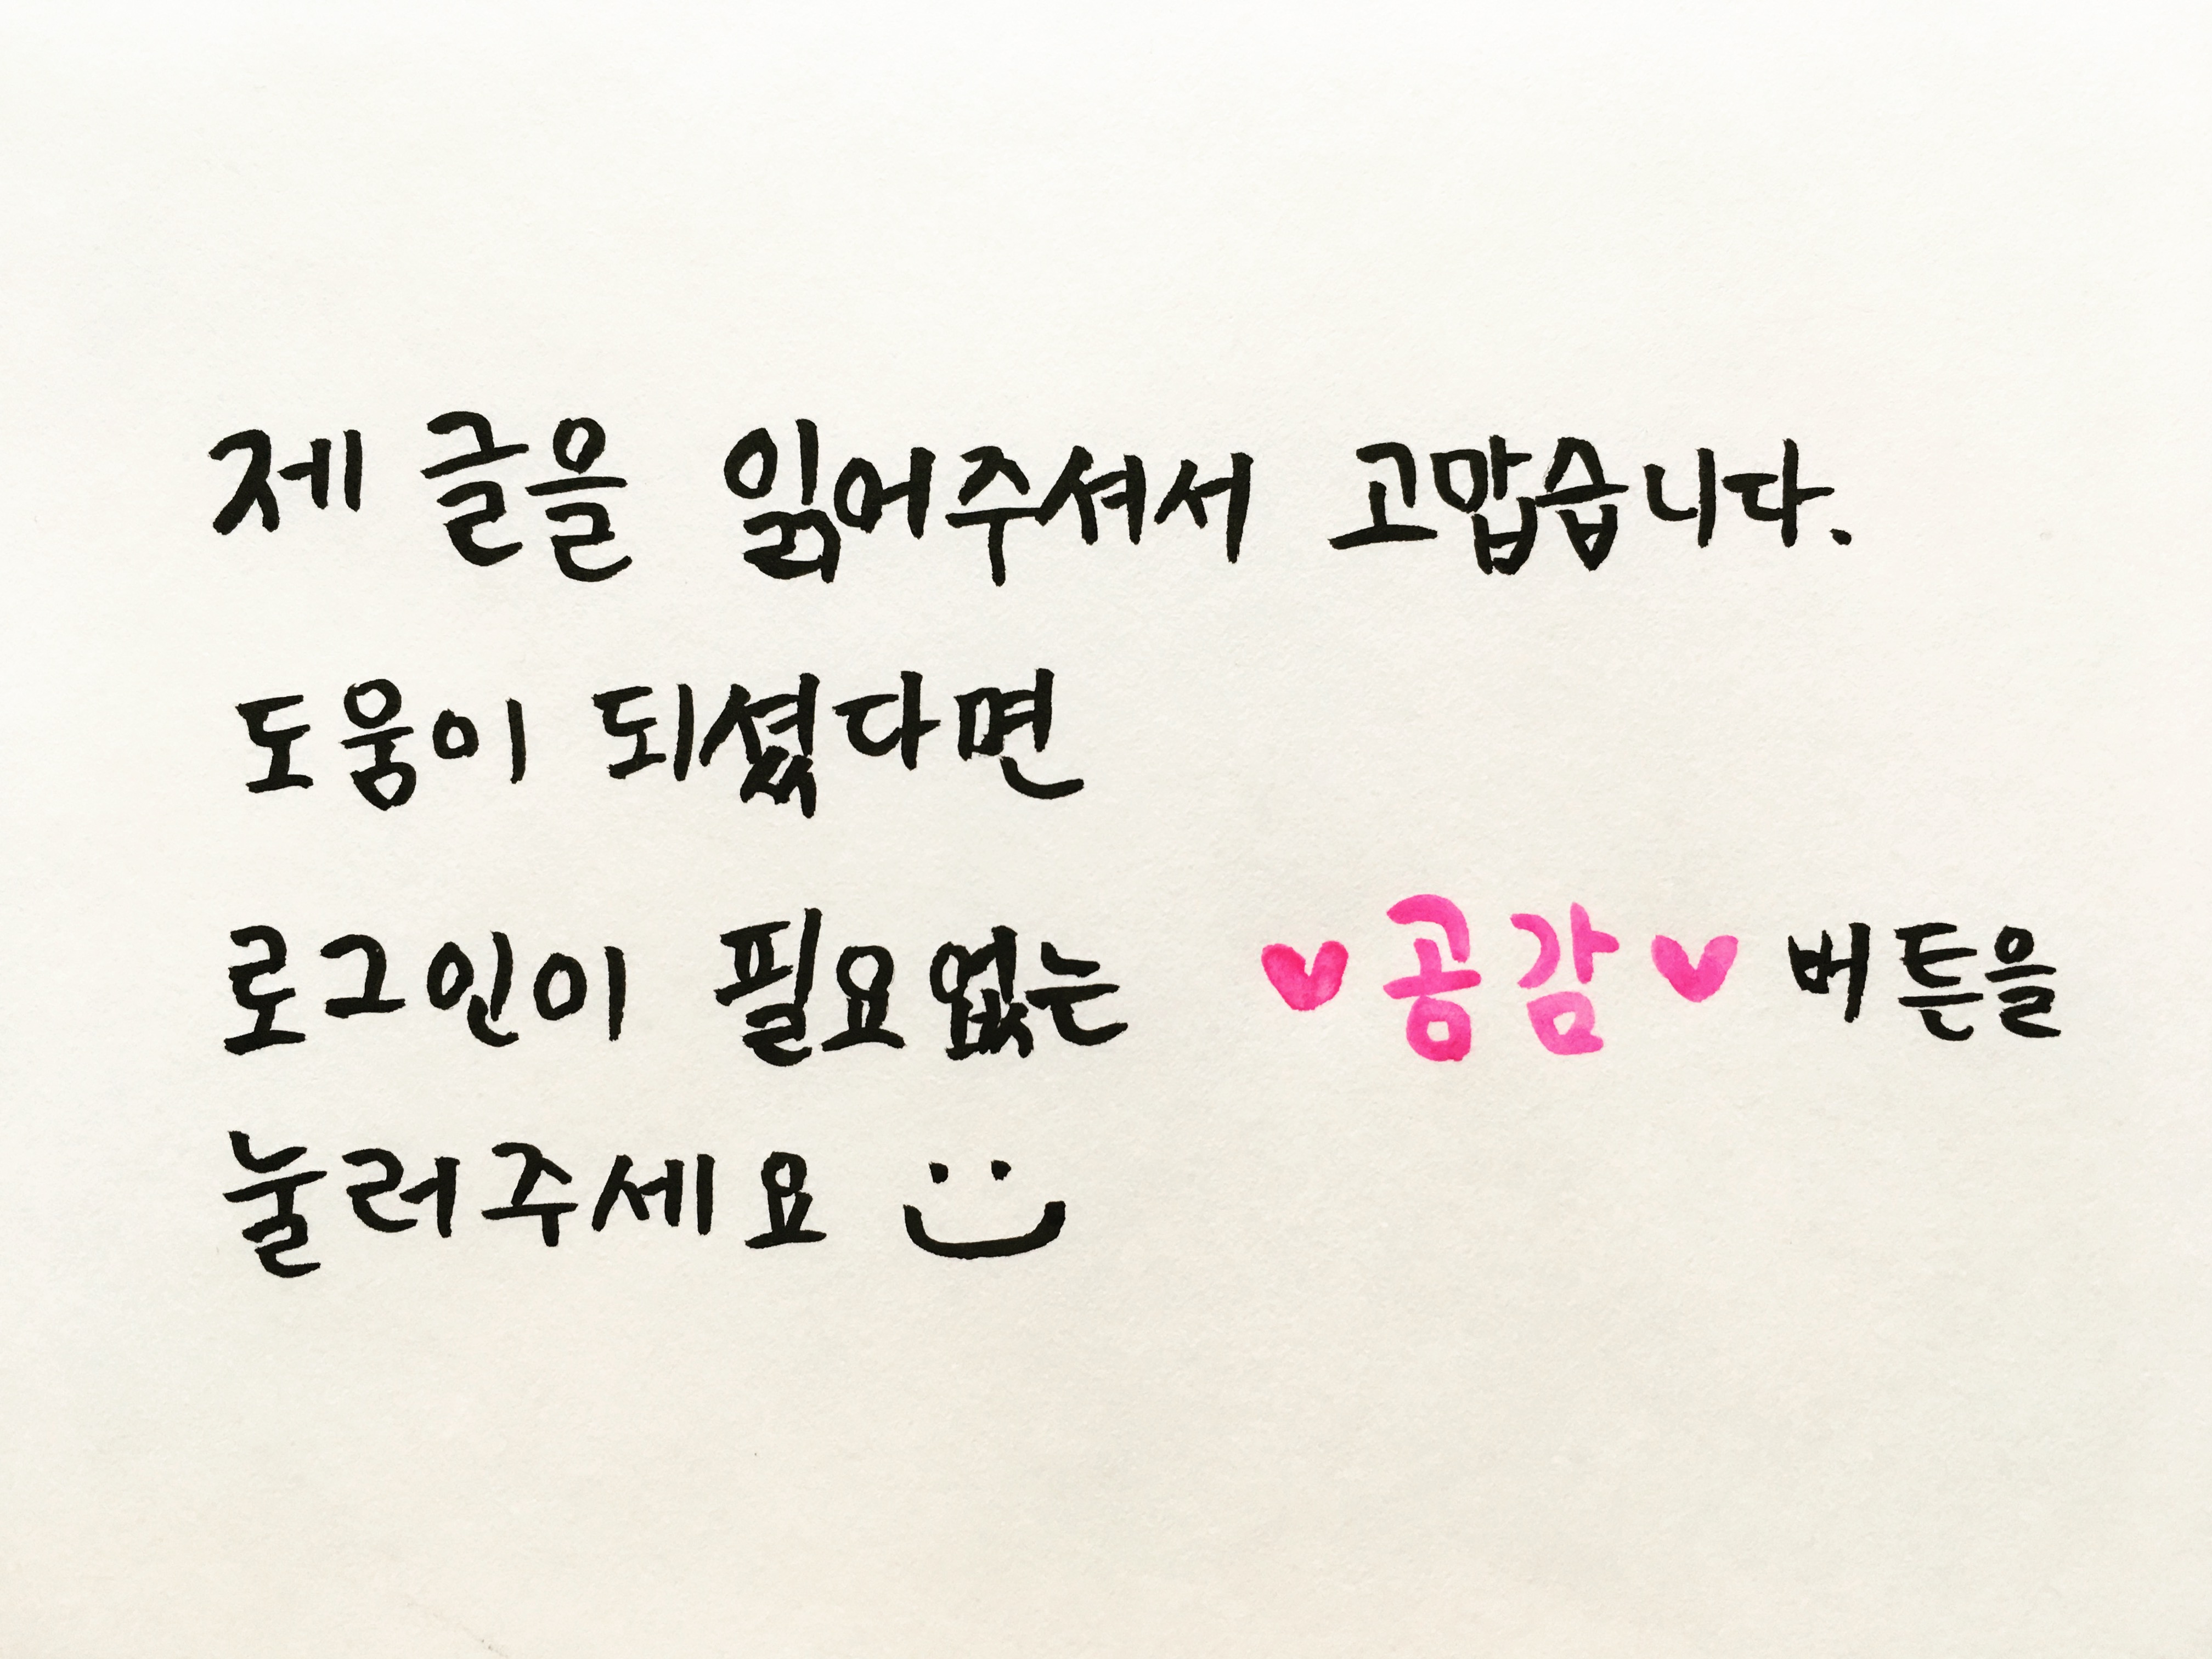 제 글을 읽어주셔서 고맙습니다.
도움이 되셨다면
로그인이 필요없는 ♥공감♥ 버튼을
눌러주세요